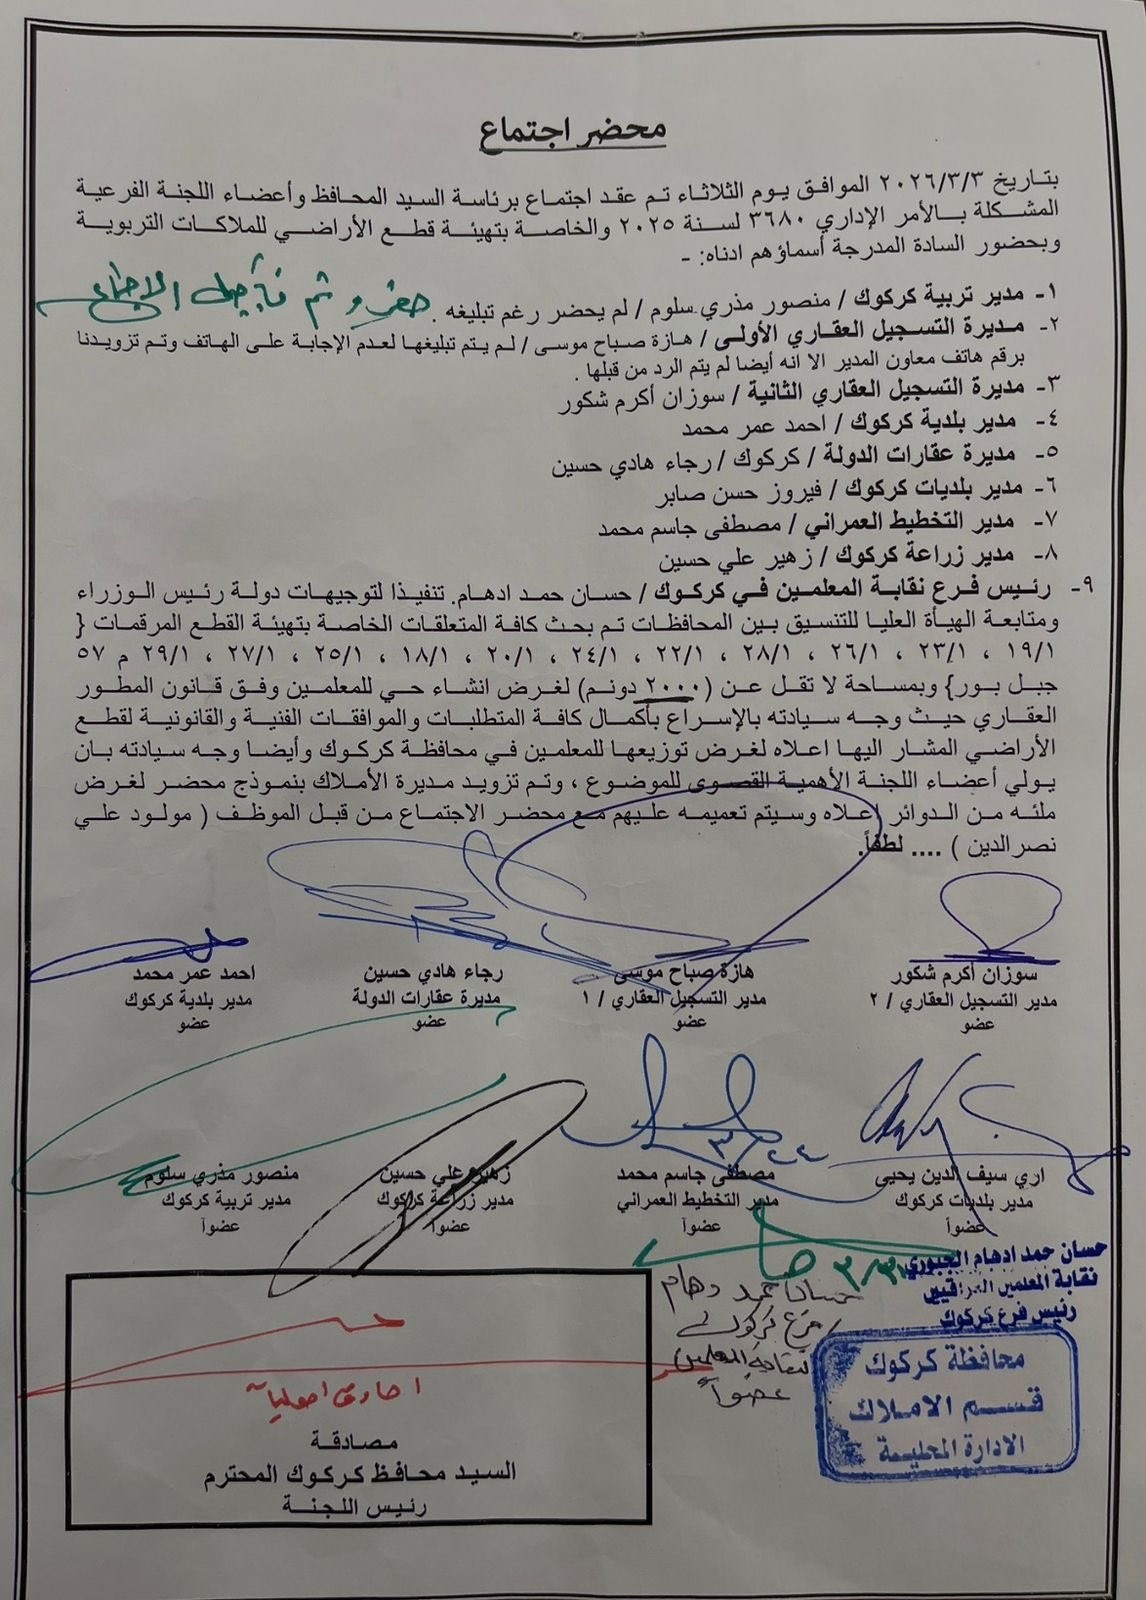 محضر اجتماع
بتاريخ ٢٠٢٦/٣/٣ الموافق يوم الثلاثاء تم عقد اجتماع برئاسة السيد المحافظ وأعضاء اللجنة الفرعية
المشكلة بالأمر الإداري ٣٦٨٠ لسنة ٢٠٢٥ والخاصة بتهيئة قطع الأراضي للملاكات التربوية
وبحضور السادة المدرجة أسماؤهم ادناه: -
١- مدير تربية كركوك / منصور مذري سلوم / لم يحضر رغم تبليغه . حضر و تم تأجيل الاجتماع
٢- مديرة التسجيل العقاري الأولى / هازة صباح موسى / لم يتم تبليغها لعدم الإجابة على الهاتف وتم تزويدنا
برقم هاتف معاون المدير الا انه أيضا لم يتم الرد من قبلها .
٣- مديرة التسجيل العقاري الثانية / سوزان أكرم شكور
٤- مدير بلدية كركوك / احمد عمر محمد
٥- مديرة عقارات الدولة / كركوك / رجاء هادي حسين
٦- مدير بلديات كركوك / فيروز حسن صابر
٧- مدير التخطيط العمراني / مصطفى جاسم محمد
٨- مدير زراعة كركوك / زهير علي حسين
٩- رئيس فرع نقابة المعلمين في كركوك / حسان حمد ادهام. تنفيذا لتوجيهات دولة رئيس الوزراء
ومتابعة الهيأة العليا للتنسيق بين المحافظات تم بحث كافة المتعلقات الخاصة بتهيئة القطع المرقمات {
١٩/١ ، ٢٣/١ ، ٢٦/١ ، ٢٨/١ ، ٢٢/١ ، ٢٤/١ ، ٢٠/١ ، ١٨/١ ، ٢٥/١ ، ٢٧/١ ، ٢٩/١ م ٥٧
جبل بور} وبمساحة لا تقل عن (٢٠٠٠ دونم) لغرض انشاء حي للمعلمين وفق قانون المطور
العقاري حيث وجه سيادته بالإسراع بأكمال كافة المتطلبات والموافقات الفنية والقانونية لقطع
الأراضي المشار اليها اعلاه لغرض توزيعها للمعلمين في محافظة كركوك وأيضا وجه سيادته بان
يولي أعضاء اللجنة الأهمية القصوى للموضوع ، وتم تزويد مديرة الأملاك بنموذج محضر لغرض
ملئه من الدوائر اعلاه وسيتم تعميمه عليهم مع محضر الاجتماع من قبل الموظف ( مولود علي
نصرالدين ) .... لطفاً.
سوزان أكرم شكور هازة صباح موسى رجاء هادي حسين احمد عمر محمد
مدير التسجيل العقاري / ٢ مدير التسجيل العقاري / ١ مديرة عقارات الدولة مدير بلدية كركوك
عضو عضو عضو عضو
٣/٢٤
اري سيف الدين يحيى مصطفى جاسم محمد زهير علي حسين منصور مذري سلوم
مدير بلديات كركوك مدير التخطيط العمراني مدير زراعة كركوك مدير تربية كركوك
عضواً عضواً عضواً عضواً
حسان حمد ادهام الجبوري
نقابة المعلمين العراقيين
رئيس فرع كركوك
حسان حمد دهام
فرع كركوك
لنقابة المعلمين
عضواً
محافظة كركوك
قسم الاملاك
الادارة المحلية
اصادق اصولياً
مصادقة
السيد محافظ كركوك المحترم
رئيس اللجنة